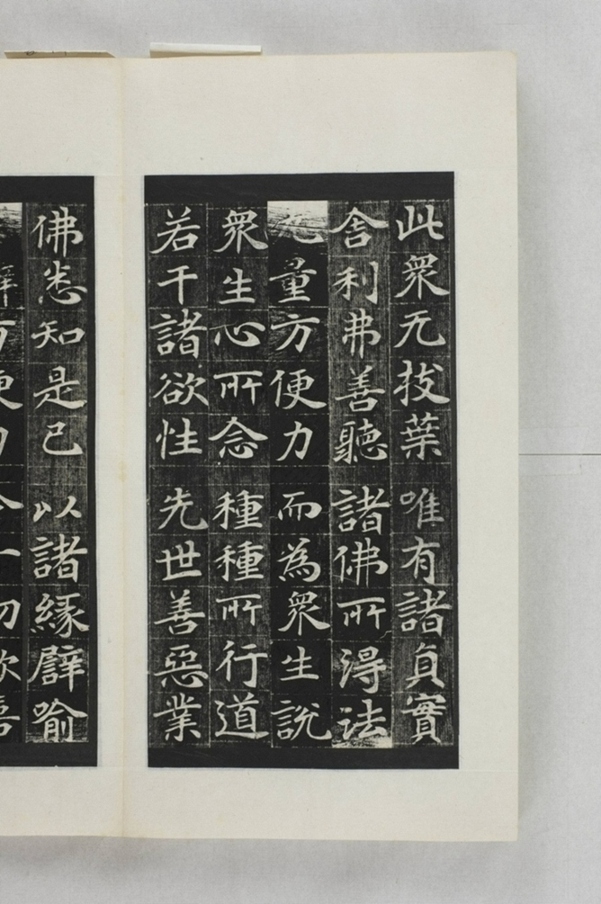 此衆无枝葉 唯有諸貞實
舎利弗善聽 諸佛所得法
无量方便力 而為衆生說
衆生心所念 種種所行道
若干諸欲性 先世善惡業
佛悉知是已 以諸緣譬喻
方便力 令一切歡喜